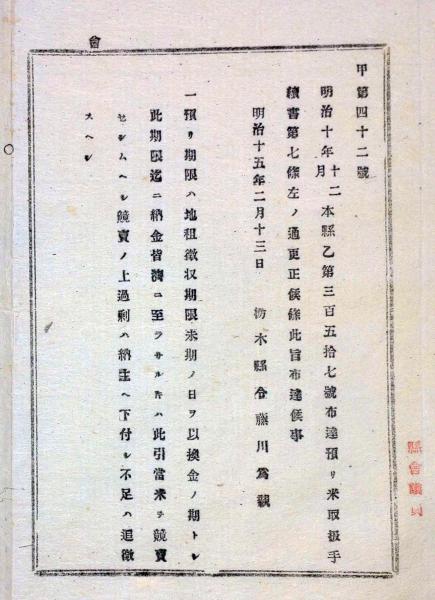 甲第四十二號
明治十年十二月本縣乙第三百五拾七號布達預リ米取扱手
續書第七條左ノ通更正候條此旨布達候事
明治十五年二月十三日　栃木縣令藤川爲親
一預リ期限ハ地租徵収期限末期ノ日ヲ以換金ノ期トシ
此期限迄ニ納金皆濟ニ至ラサルキハ此引當米ヲ競賣
セシムヘシ競賣ノ上過剩ハ納主ヘ下付シ不足ハ追徵
スヘシ
會
縣會議員